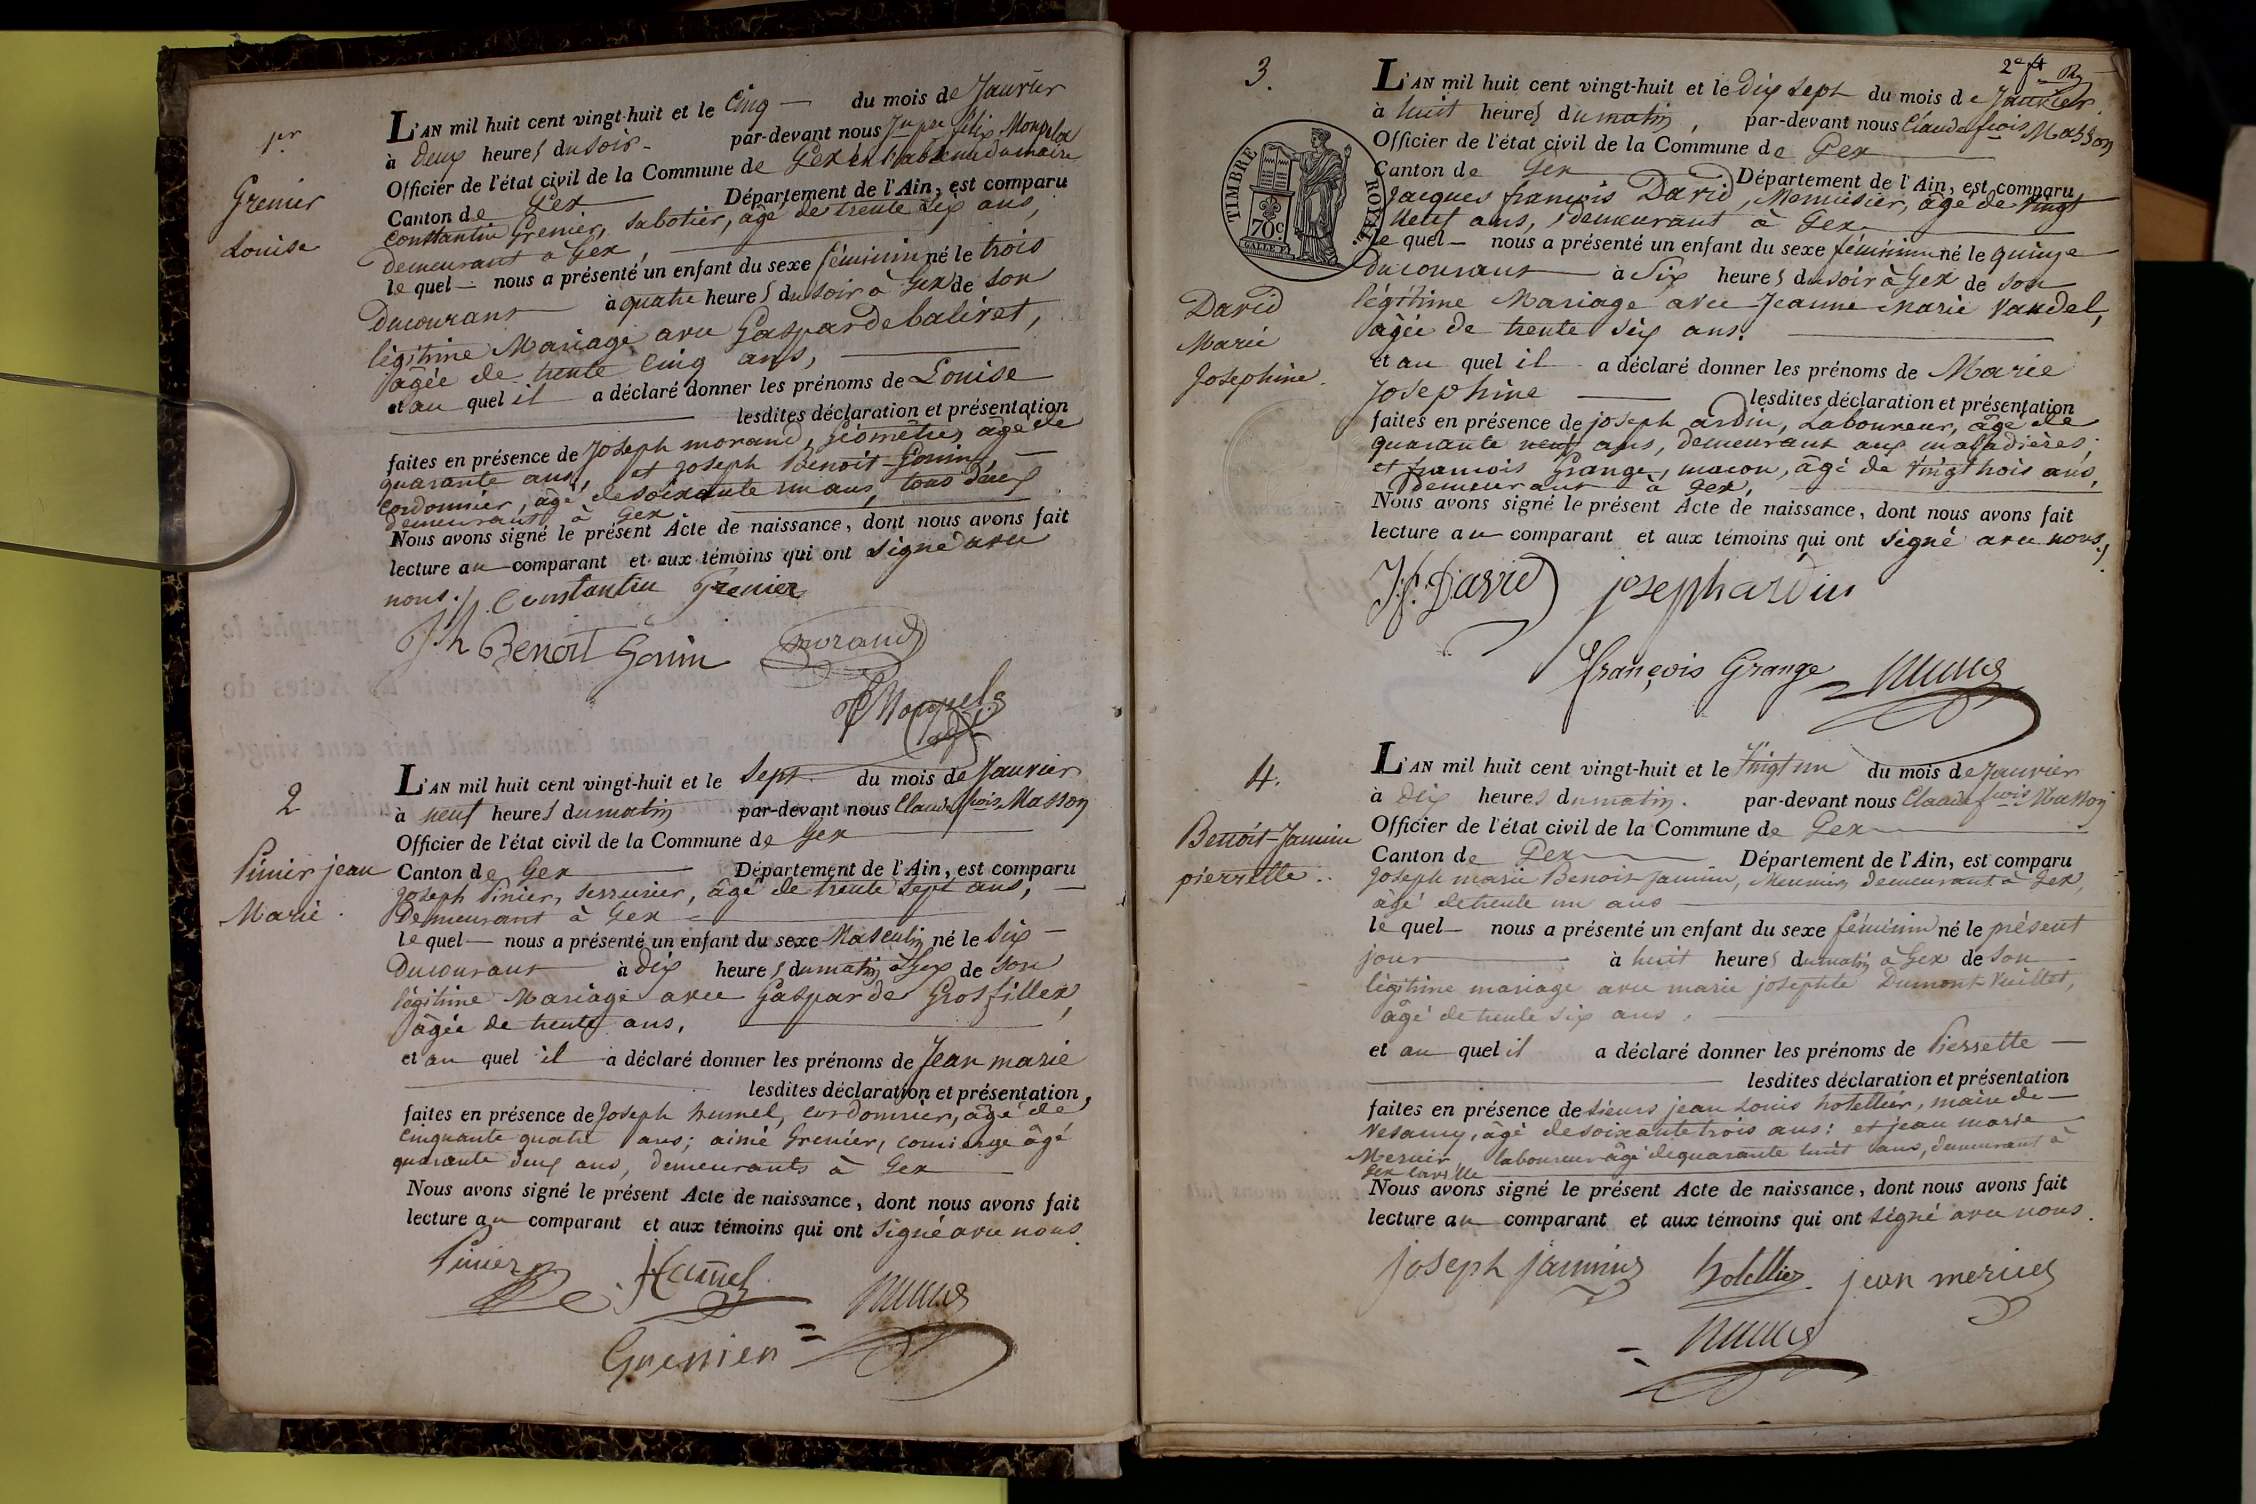 1er
Grenier
Louise
L'AN mil huit cent vingt-huit et le Cinq du mois de Janvier
à Deux heures du soir par-devant nous félix Monpela
Officier de l'état civil de la Commune de Gex en l'absence du maire
Canton de Gex Département de l'Ain, est comparu
Constantin Grenier, sabotier, âgé de trente six ans,
demeurant à Gex,
le quel nous a présenté un enfant du sexe féminin né le trois
Du courant à quatre heures du soir à Gex de son
légitime Mariage avec Gasparde baliret,
âgée de trente cinq ans,
et au quel il a déclaré donner les prénoms de Louise
lesdites déclaration et présentation
faites en présence de Joseph morand, géomètre, âgé de
quarante ans, et Joseph Benoit-Gonin,
Cordonnier, âgé de soixante un ans, tous deux
demeurant à Gex
Nous avons signé le présent Acte de naissance, dont nous avons fait
lecture au comparant et aux témoins qui ont signé avec
nous./. Constantin Grenier
Jh Benoit Gonin morand
2
Pinier jean
Marie.
L'AN mil huit cent vingt-huit et le sept du mois de Janvier
à neuf heures du matin par-devant nous Claude fcois Masson
Officier de l'état civil de la Commune de Gex
Canton de Gex Département de l'Ain, est comparu
Joseph Pinier, serrurier, âgé de trente sept ans,
Demeurant à Gex
le quel nous a présenté un enfant du sexe Masculin né le six
Du courant à dix heures du matin à Gex de son
légitime Mariage avec Gasparde Grosfillex,
âgée de trente ans,
et au quel il a déclaré donner les prénoms de Jean marie
lesdites déclaration et présentation,
faites en présence de Joseph humel, cordonnier, âgé de
cinquante quatre ans; aimé Grenier, concierge âgé
quarante deux ans, demeurants à Gex
Nous avons signé le présent Acte de naissance, dont nous avons fait
lecture au comparant et aux témoins qui ont signé avec nous.
Pinier
Grenier
3.
2e ft
TIMBRE ROYAL.
70c
David
Marie
Josephine.
L'AN mil huit cent vingt-huit et le Dix sept du mois de Janvier
à huit heures du matin, par-devant nous Claude fcois Masson
Officier de l'état civil de la Commune de Gex
Canton de Gex Département de l'Ain, est comparu
Jacques françois David, Menuisier, âgé de vingt
neuf ans, demeurant à Gex
le quel nous a présenté un enfant du sexe féminin né le quinze
Du courant à Six heures du soir à Gex de son
légitime Mariage avec Jeanne Marie Vandel,
âgée de trente six ans.
et au quel il a déclaré donner les prénoms de Marie
Josephine lesdites déclaration et présentation
faites en présence de joseph ardin, Laboureur, âgé de
quarante neuf ans, demeurant aux maladières;
et françois Grange, macon, âgé de vingt trois ans,
demeurant à Gex,
Nous avons signé le présent Acte de naissance, dont nous avons fait
lecture au comparant et aux témoins qui ont signé avec nous./.
J.f. David joseph ardin
françois Grange
4.
Benoit-Jannin
pierrette.
L'AN mil huit cent vingt-huit et le Vingt un du mois de Janvier
à Dix heures du matin. par-devant nous Claude fcois Masson
Officier de l'état civil de la Commune de Gex
Canton de Gex Département de l'Ain, est comparu
Joseph marie Benoit-Jannin, Meunier, demeurant à Gex,
âgé de trente un ans
le quel nous a présenté un enfant du sexe féminin né le présent
jour à huit heures du matin à Gex de son
légitime mariage avec marie josephte Dumont-Vuillet,
âgé de trente six ans.
et au quel il a déclaré donner les prénoms de Pierrette
lesdites déclaration et présentation
faites en présence de sieurs jean Louis hotellier, maire de
Vesancy, âgé de soixante trois ans: et jean marie
Mercier laboureur âgé de quarante huit ans, demeurant à
Gex
Nous avons signé le présent Acte de naissance, dont nous avons fait
lecture au comparant et aux témoins qui ont signé avec nous.
joseph jannin hotellier jean mercier